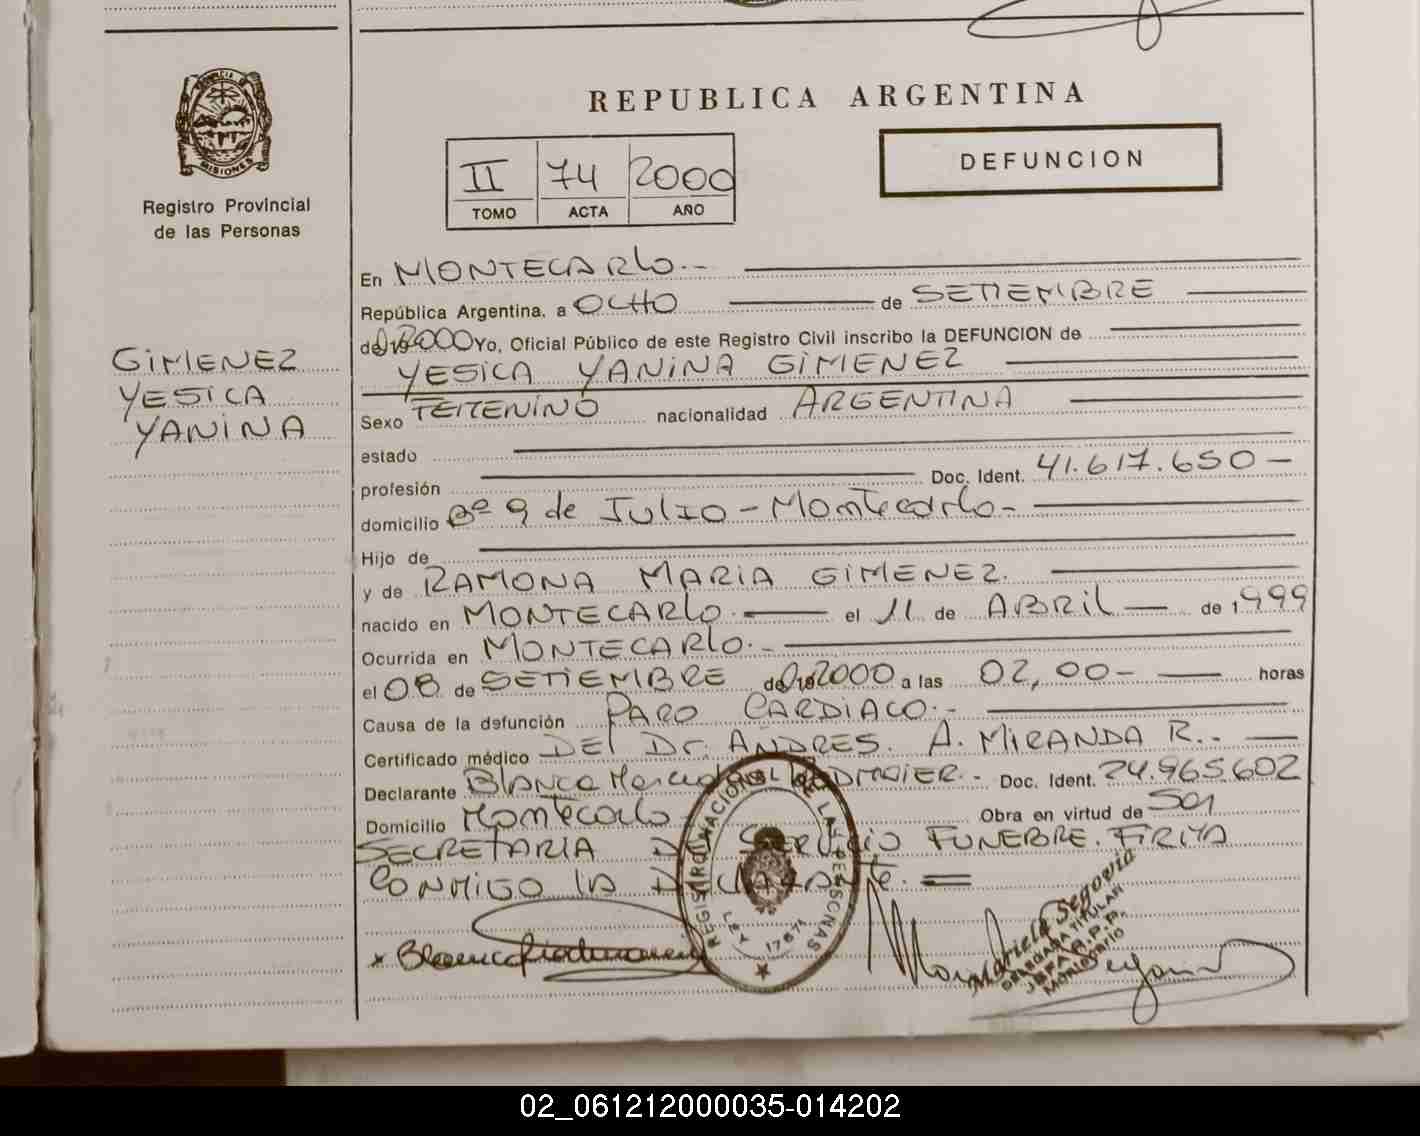 REPUBLICA ARGENTINA
II 74 2000
TOMO ACTA AÑO
DEFUNCION
MISIONES
Registro Provincial
de las Personas
GIMENEZ
YESICA
YANINA
En MONTECARLO.-
República Argentina, a OCHO de SETIEMBRE
de 2000 Yo, Oficial Público de este Registro Civil inscribo la DEFUNCION de
YESICA YANINA GIMENEZ
Sexo FEMENINO nacionalidad ARGENTINA
estado
profesión Doc. Ident. 41.617.650-
domicilio Bº 9 de Julio - Montecarlo-
Hijo de
y de RAMONA MARIA GIMENEZ.
nacido en MONTECARLO.- el 11 de ABRIL de 1.999
Ocurrida en MONTECARLO.-
el 08 de SETIEMBRE de 2000 a las 02,00- horas
Causa de la defunción PARO CARDIACO.-
Certificado médico DEL Dr. ANDRES. A. MIRANDA R..
Declarante BLANCA Doc. Ident. 24.965.602
Domicilio Montecarlo Obra en virtud de SOR
SECRETARIA DE SERVICIO FUNEBRE. FIRMA
CONMIGO LA DECLARANTE.
REGISTRO NACIONAL DE LAS PERSONAS
LEY 17671
Mariela Segovia
DELEGADA TITULAR
MONTECARLO
02_061212000035-014202